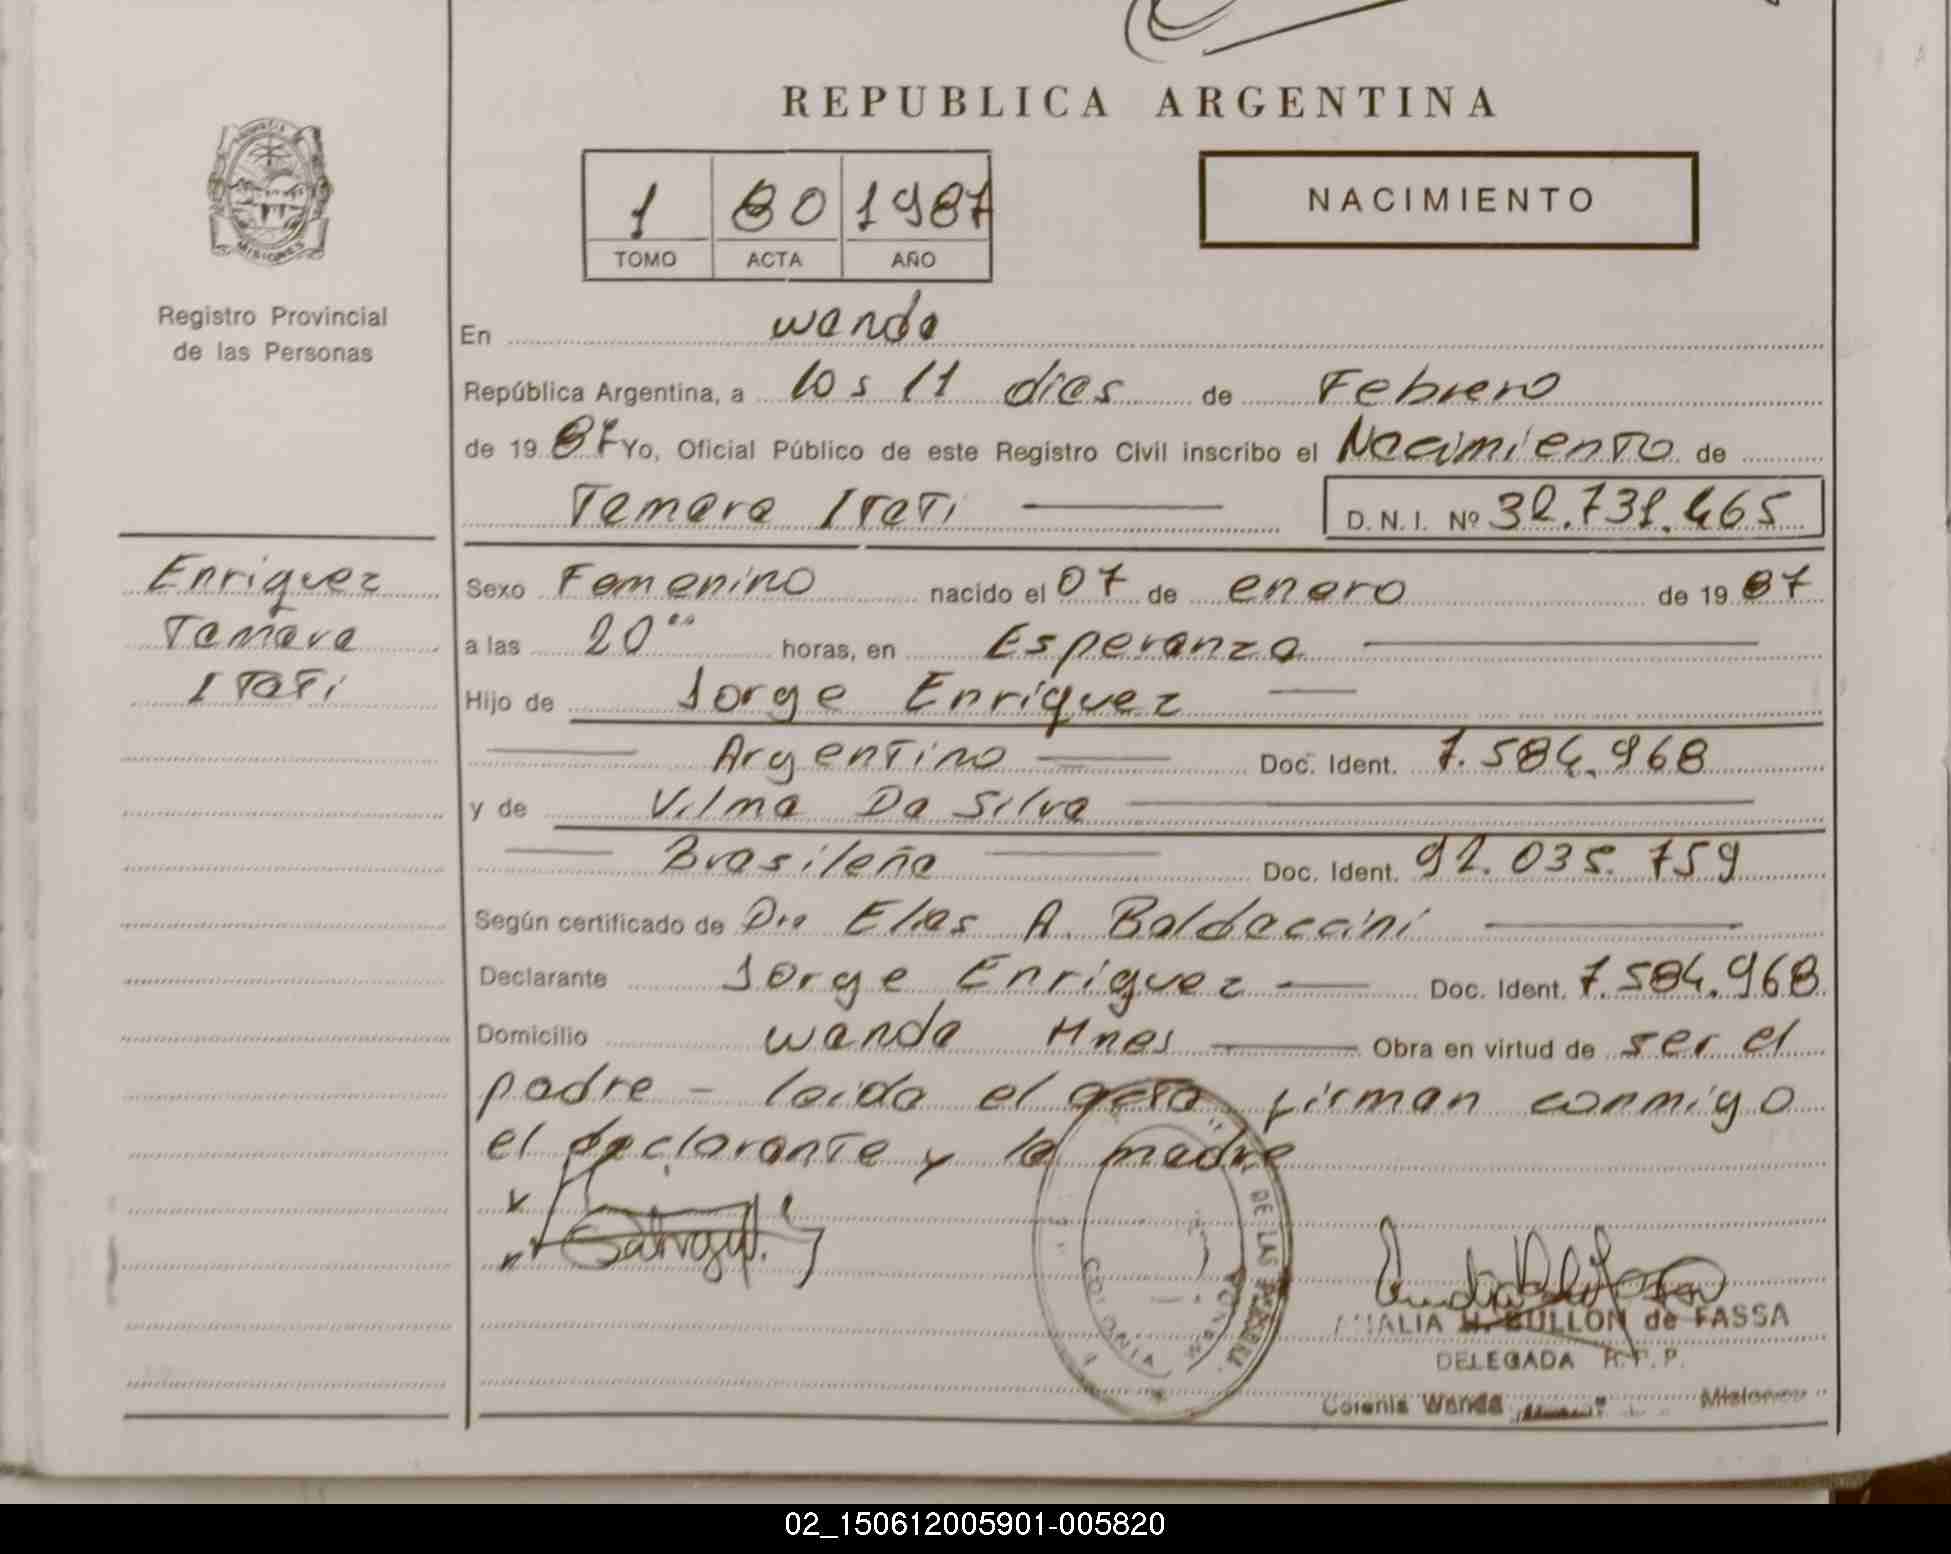 REPUBLICA ARGENTINA
1 80 1987
TOMO ACTA AÑO
NACIMIENTO
MISIONES
Registro Provincial
de las Personas
En wanda
República Argentina, a los 11 dias de Febrero
de 19 87 Yo, Oficial Público de este Registro Civil inscribo el Nacimiento de
Tamara Itati D. N. I. Nº 32.731.465
Enriquez
Tamara
Itati
Sexo Femenino nacido el 07 de enero de 19 87
a las 20°° horas, en Esperanza
Hijo de Jorge Enriquez
Argentino Doc. Ident. 7.584.968
y de Vilma Da Silva
Brasileña Doc. Ident. 92.035.759
Según certificado de Dr. Elias A. Baldaccini
Declarante Jorge Enriquez Doc. Ident. 7.584.968
Domicilio wanda Mnes Obra en virtud de ser el
padre - leida el acta firman conmigo
el declarante y la madre
DE LAS
COLONIA WANDA
AMALIA H. BULLON de FASSA
DELEGADA R.P.P.
Colonia Wanda Misiones
02_150612005901-005820